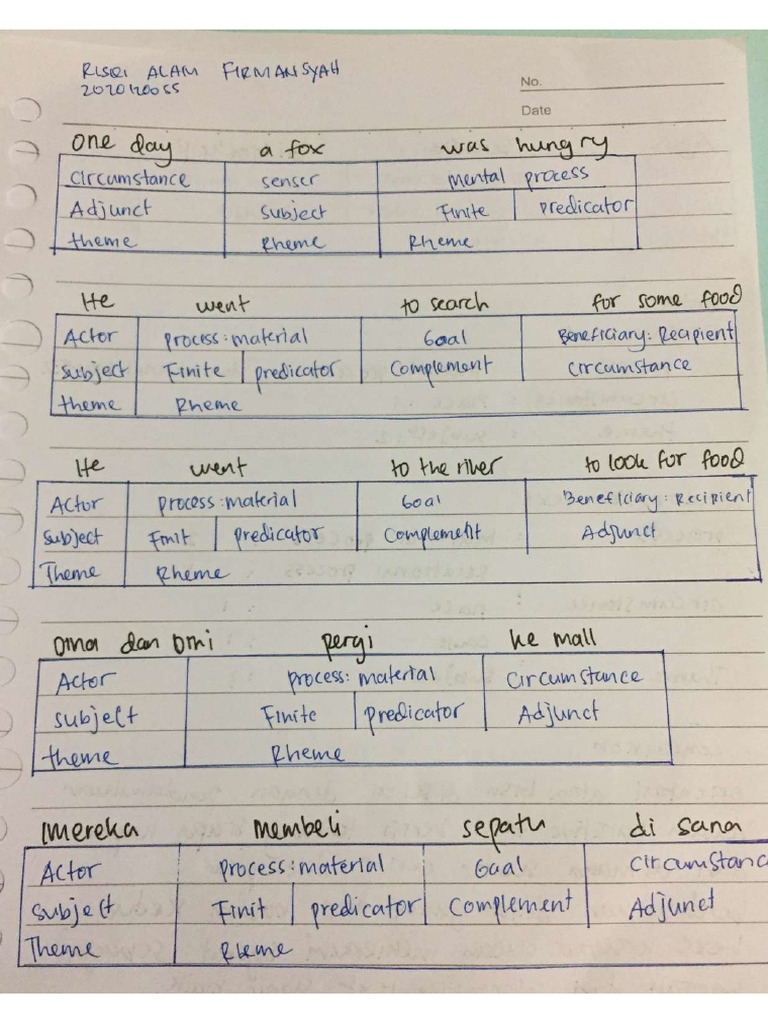 RISQI ALAM FIRMANSYAH
2020120055
No.
Date
one day a fox was hungry
Circumstance senser mental process
Adjunct subject Finite predicator
theme Rheme Rheme
He went to search for some food
Actor process: material Goal Beneficiary: Recipient
subject Finite predicator Complement Circumstance
theme Rheme
He went to the river to look for food
Actor process: material Goal Beneficiary: Recipient
subject Finit predicator Complement Adjunct
Theme Rheme
oma dan omi pergi ke mall
Actor process: material Circumstance
subject Finite predicator Adjunct
theme Rheme
mereka membeli sepatu di sana
Actor process: material Goal Circumstanc
subject Finit predicator Complement Adjunct
Theme Rheme